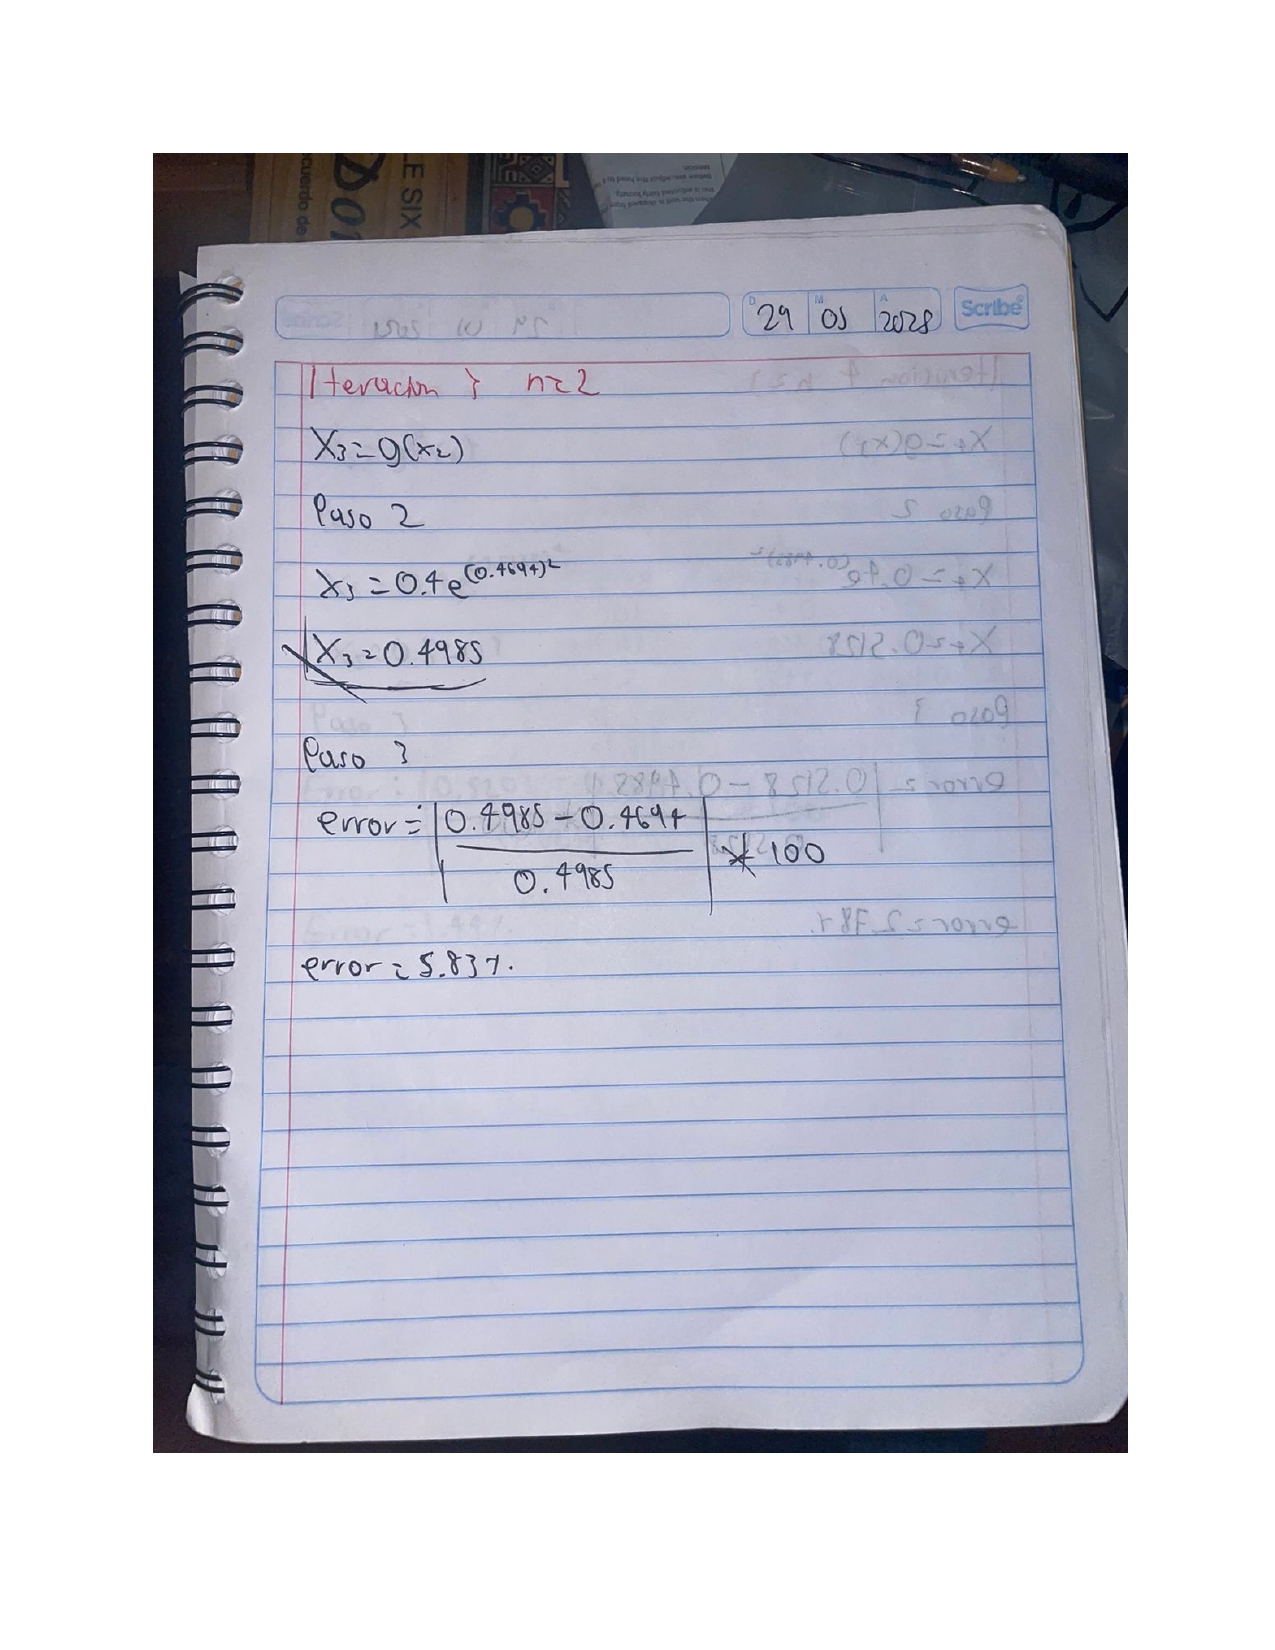 LE SIX
Dor
cuerdo de
D 29 M 05 A 2028 Scribe
Iteracion 3 n=2
X₃=g(x₂)
Paso 2
X₃=0.4e^(0.4694)²
X₃=0.4985
Paso 3
error=|0.4985-0.4694
0.4985| * 100
error=5.83%.